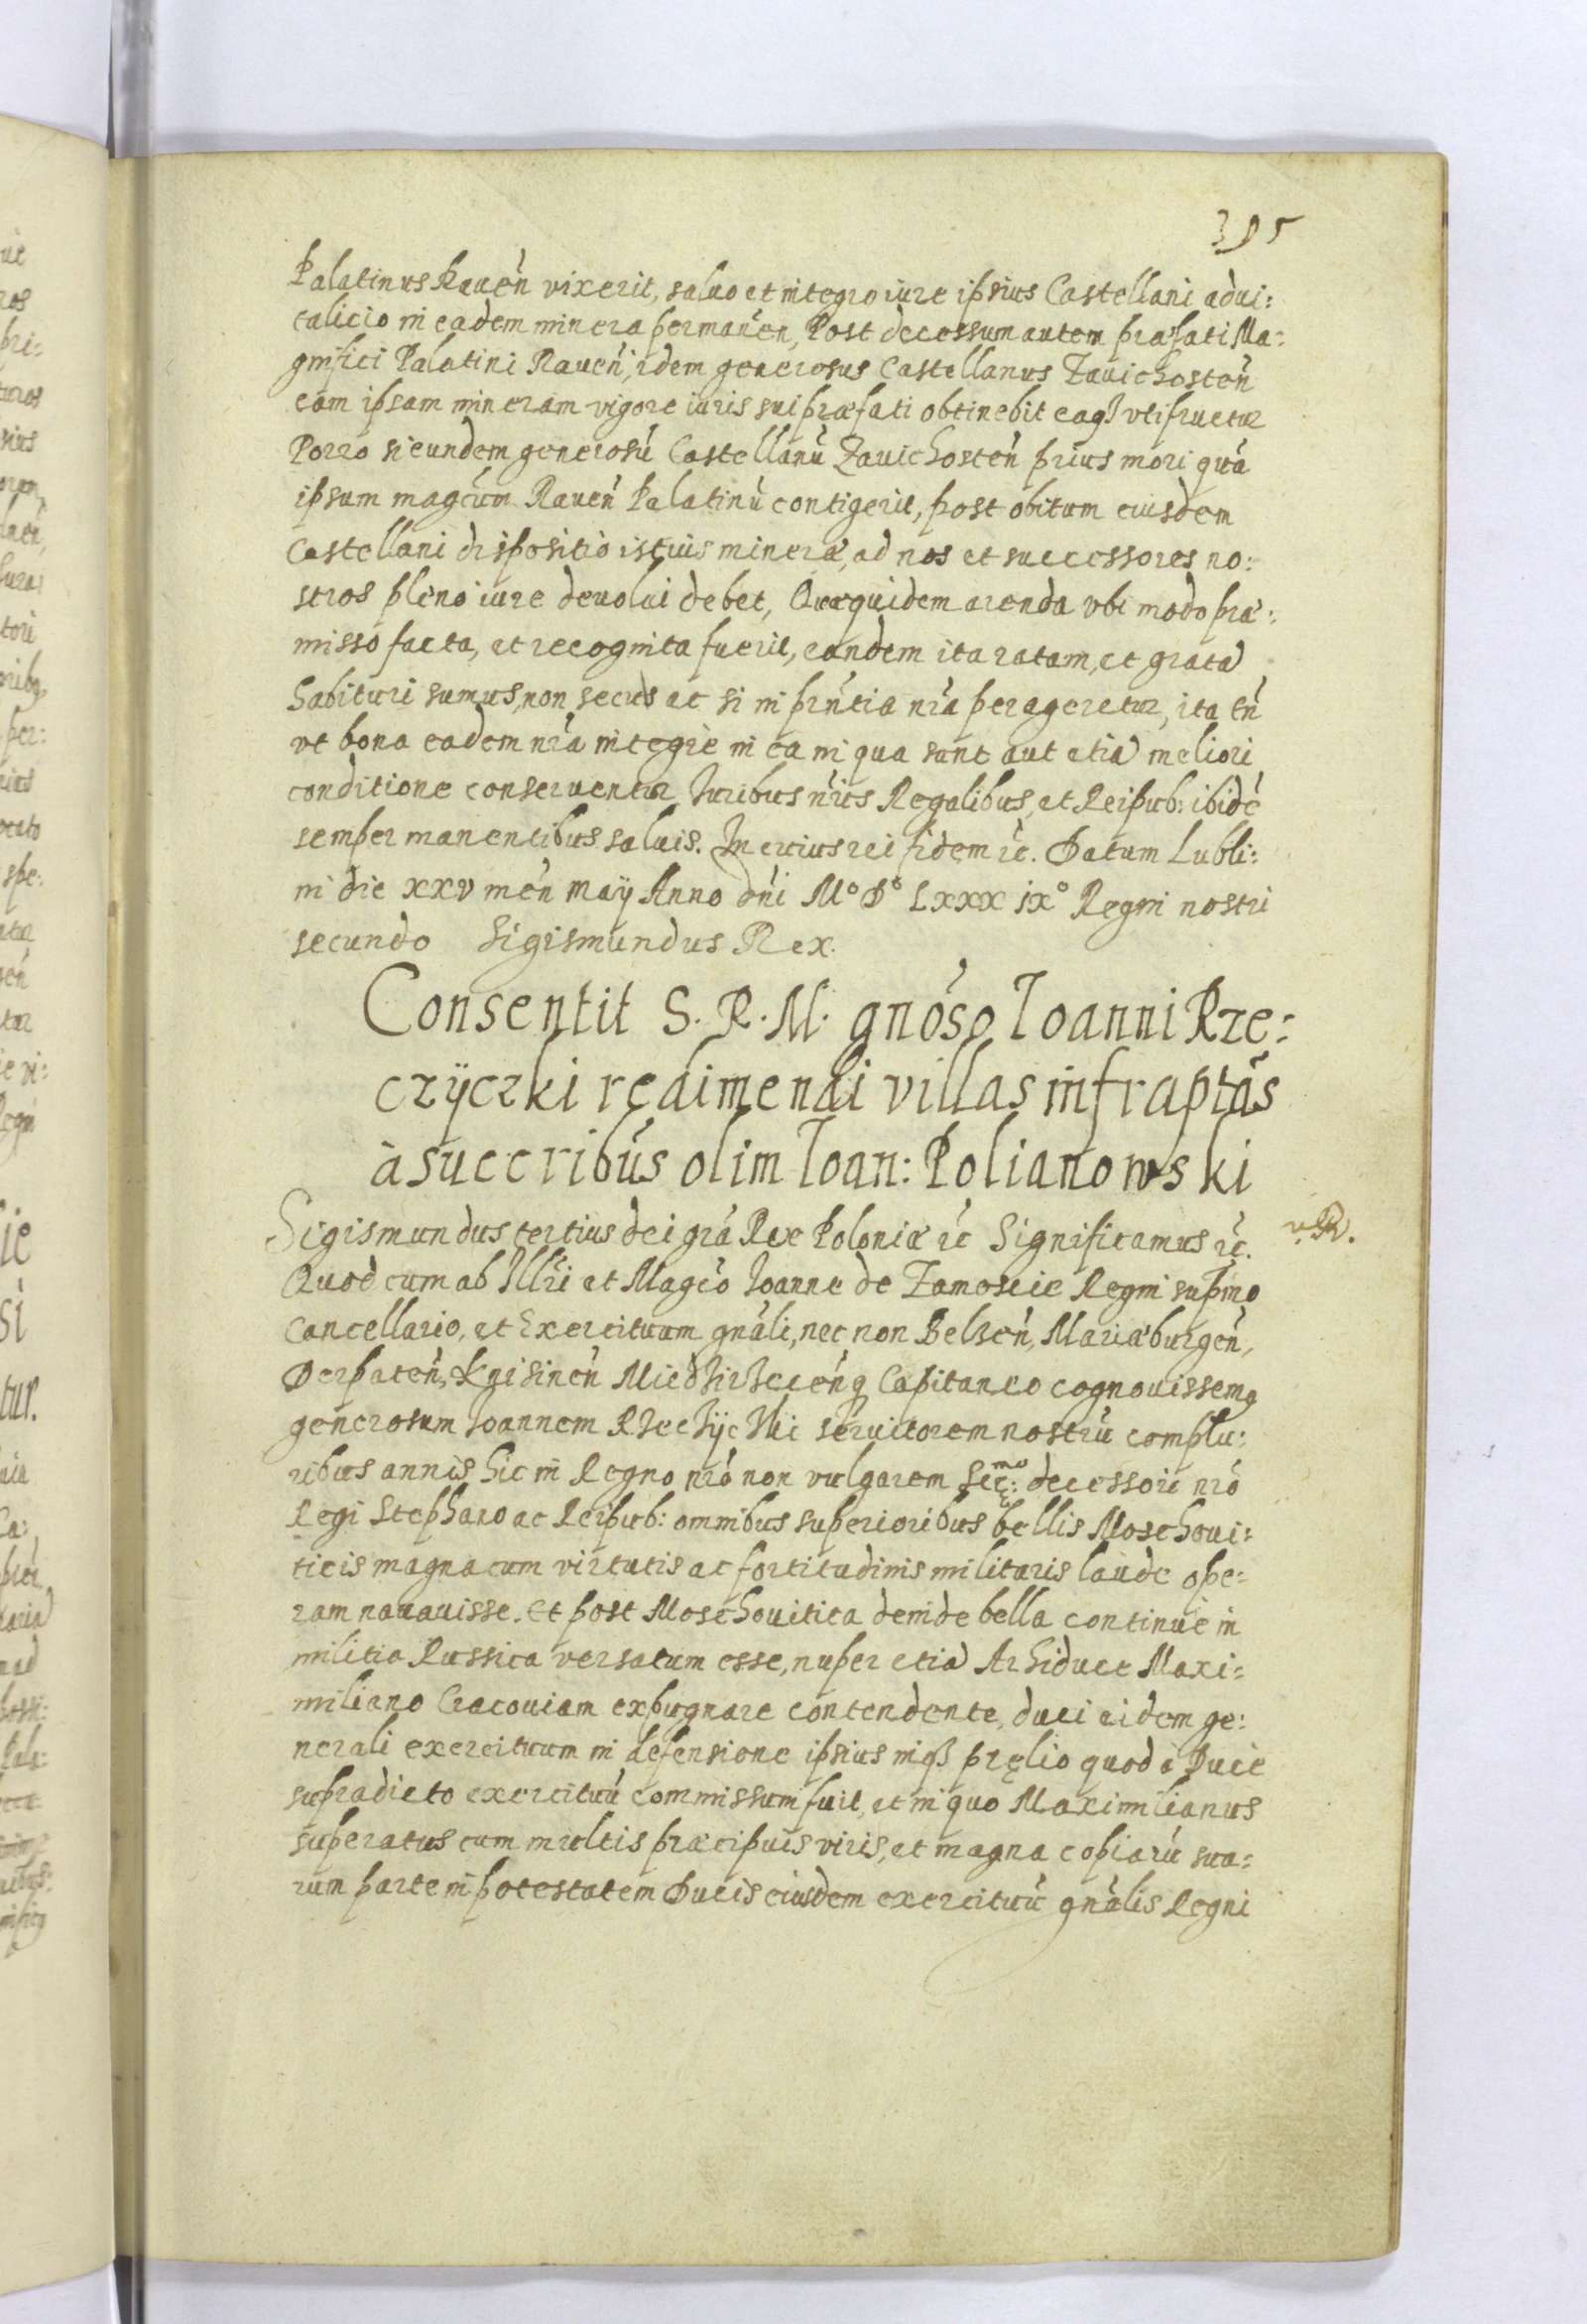 395
Palatinus Rauen̄ vixerit, saluo et integro iure ipsius Castellani adui:
talicio in eadem minera permanen̄, Post decessum autem præfati Ma:
gnifici Palatini Rauen̄, idem generosus Castellanus Zauichosten̄
eam ipsam mineram vigore iuris sui præfati obtinebit eaqȝ vtifruetur
Porro si eundem generosū Castellanū Zauichosten̄ prius mori quā
ipsum magcūm Rauen̄ Palatinū contigerit, post obitum eiusdem
Castellani dispositio istius mineræ, ad nos et successores no:
stros pleno iure deuolui debet, Quæquidem arenda vbi modo præ:
misso facta, et recognita fuerit, eandem ita ratam, et gratā
habituri sumus, non secus ac si in prn̄tia nr̄a perageretur, ita tn̄
vt bona eadem nr̄a integrè in ea in qua sunt aut etiā meliori
conditione conseruentur Iuribus nr̄is Regalibus, et Reipub: ibidē
semper manentibus saluis. In cuius rei fidem ꝛc̄. Datum Lubli:
ni die xxv men̄ Maÿ Anno dn̄i Mº Dº Lxxx ixº Regni nostri
secundo Sigismundus Rex.
Consentit S. R. M. gnōso Ioanni Rze:
czÿczki redimendi villas infraptas
à succribus olim Ioan: Polianowski
Sigismundus tertius dei grā Rex Poloniæ ꝛc̄ Significamus ꝛc̄.
v. R.
Quod cum ab Illr̄i et Magcō Ioanne de Zamoscie Regni sup̄mo
Cancellario, et Exercituum gn̄ali, nec non Belzen̄, Mariæburgen̄,
Derpaten̄, Knisinen̄ Miedzirzecen̄qȝ Capitaneo cognouissemꝯ
generosum Ioannem Rzeczÿczki seruitorem nostrū complu:
ribus annis hic in Regno nr̄o non vulgarem Sec:mo decessori nr̄o
Regi Stephano ac Reipub: omnibus superioribus bellis Moschoui:
ticis magna cum virtutis ac fortitudinis militaris laude ope:
ram nauauisse. Et post Moschouitica deinde bella continuè in
militia Russica versatum esse, nuper etiā Arhiduce Maxi:
miliano Cracouiam expugnare contendente, duci eidem ge:
nerali exercituum in defensione ipsius inqȝ prȩlio quod à Duce
supradicto exercituū commissum fuit, et in quo Maximilianus
superatus cum multis præcipuis viris, et magna copiarū sua:
rum parte in potestatem Ducis eiusdem exercituū gn̄alis Regni